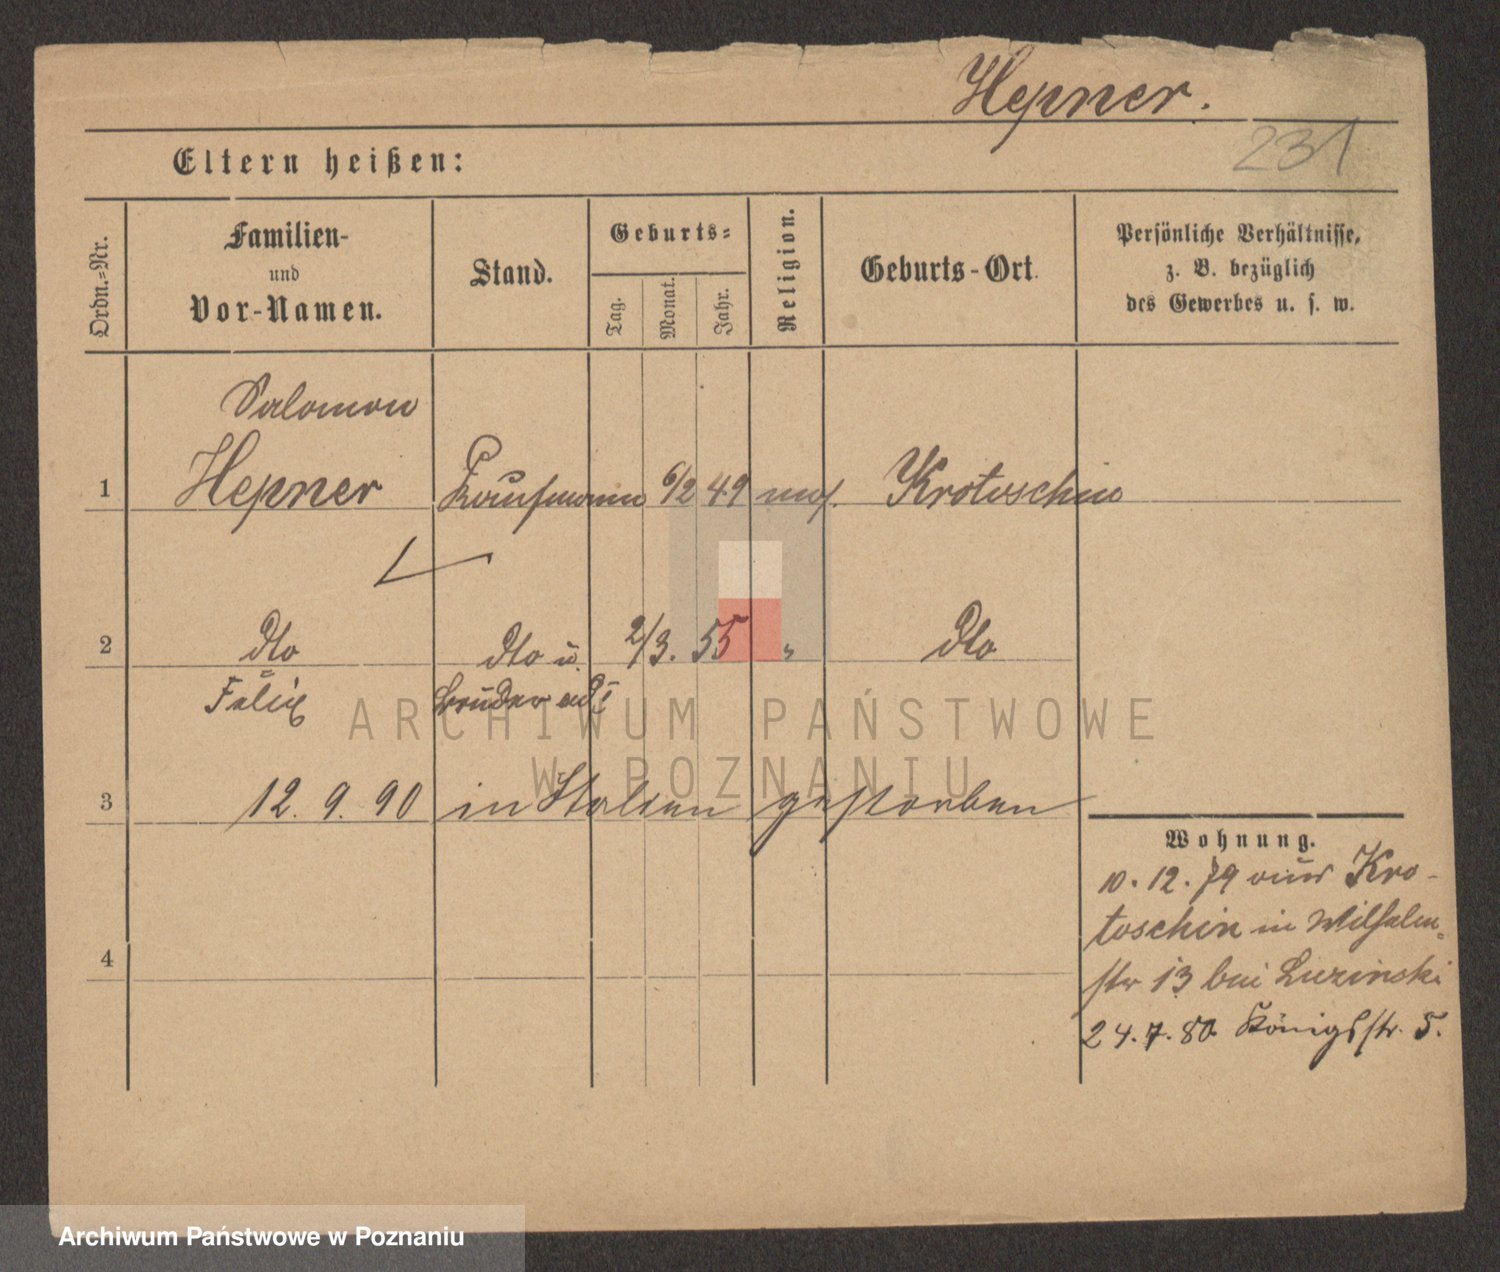 Hepner.
231
Eltern heißen:
Ordn.-Nr.
Familien-
und
Vor-Namen.
Stand.
Geburts-
Tag.
Monat.
Jahr.
Religion.
Geburts-Ort.
Persönliche Verhältnisse,
z. B. bezüglich
des Gewerbes u. s. w.
Salomon
1 Hepner Kaufmann 6/2 49 mos. Krotoschin
2 dto dto u. 2/3. 55 " dto
Felix Bruder ad 1
3 12. 9. 90 in Italien gestorben
4
Wohnung.
10. 12. 79 aus Kro-
toschin in Wilhelm-
str 13 bei Luzinski
24. 7. 80 Königsstr. 5.
ARCHIWUM PAŃSTWOWE
W POZNANIU
Archiwum Państwowe w Poznaniu